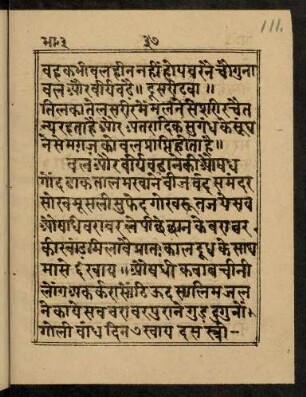 111.
भा॰३ ३७
वह कभी बल हीन नहीं होय बरने चौगुना
बल और वीर्य बढे ॥ दूसरी दवा ॥
तिलका तेल सरीरमें मलने से शरीर चैत
न्य रहता है और अतरादिक सुगंध के सूघ
ने से मगज को बल प्राप्ति होता है ॥
बल और वीर्य बढाने की औषध
गोंद ढाक ताल मखाने बीजबंद समंदर
सोख मूसली सुफेद गोखरू तज ये सब
औषधि बराबर ले पीछे छान के बराबर
की खांड मिलावै प्रातःकाल दूध के साथ
मासे ६ खाय ॥ औषधी कबाब चीनी
लोंग अकर्करा सोंठि ऊद सालिम जल
ने काये सब बराबर पुराने गुड दुगुनों
गोली बांध दिन ७ खाय दस स्त्री